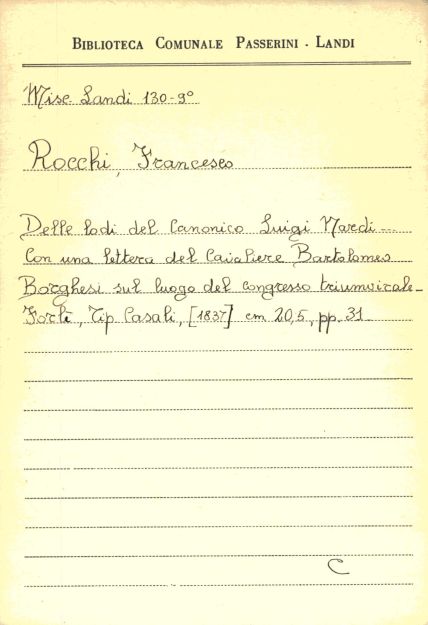 BIBLIOTECA COMUNALE PASSERINI - LANDI
Misc Landi 130-9°
Rocchi, Francesco
Delle lodi del Canonico Luigi Nardi -
Con una lettera del Cavaliere Bartolomeo
Borghesi sul luogo del congresso triumvirale -
Forlì, Tip Casali, [1837] cm 20,5, pp. 31
C